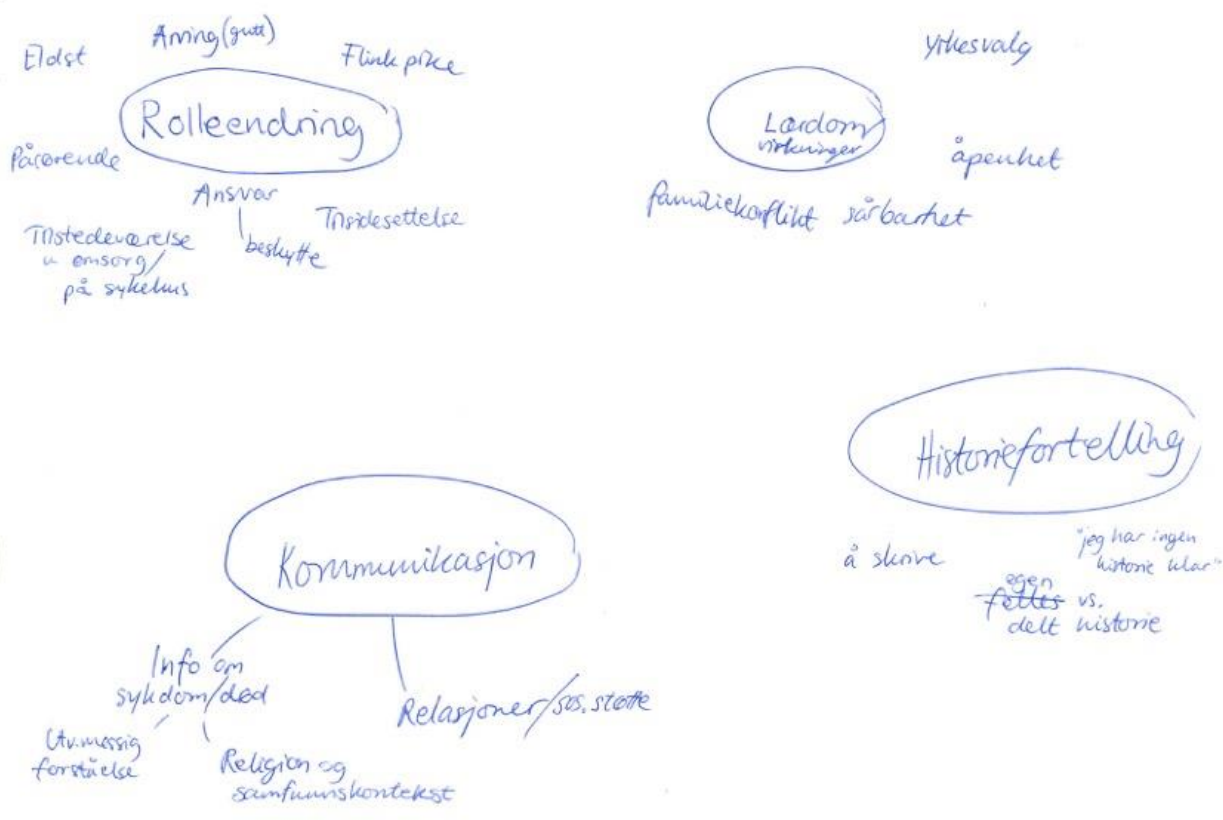 Eldst
Arving (gutt)
Flink pike
Rolleendring
Pårørende
Ansvar
beskytte
Tilsidesettelse
Tilstedeværelse
u omsorg/
på sykehus
Yrkesvalg
Lærdom/
virkninger
åpenhet
familiekonflikt
sårbarhet
Historiefortelling
å skrive
"jeg har ingen
historie klar"
egen
felles vs.
delt historie
Kommunikasjon
Info om
sykdom/død
Utv.messig
forståelse
Religion og
samfunnskontekst
Relasjoner/sos. støtte